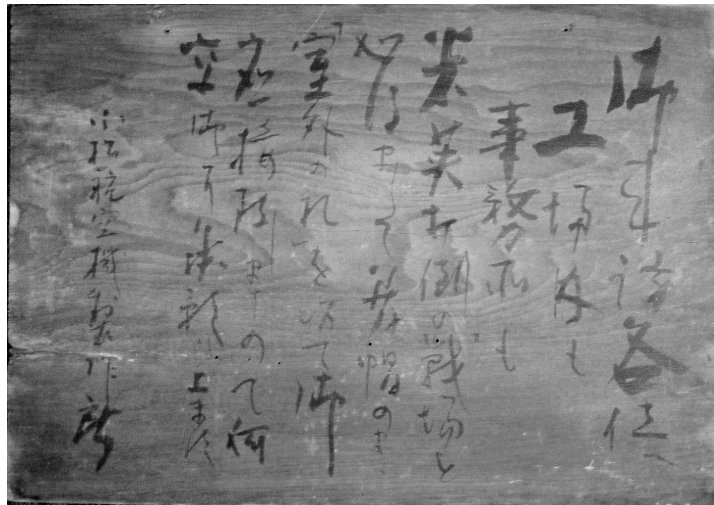 御来訪各位
工場内も
事務所も
米英打倒の戦場と
心得まして着帽のまゝ
室外の
応接致しますので何
卒御了承願上ます
小松航空機製作所